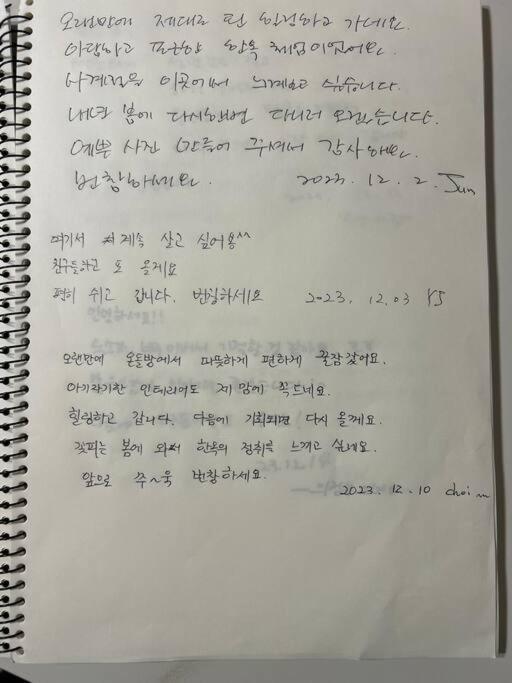 오랜만에 제대로 된 힐링하고 가네요.
아담하고 포근한 한옥 체험이었어요.
사계절을 이곳에서 느껴보고 싶습니다.
내년 봄에 다시한번 다니러 오겠습니다.
예쁜 사진 만들어 주셔서 감사해요.
번창하세요. 2023. 12. 2. Jun
여기서 계속 살고 싶어용^^
친구들하고 또 올게요
편히 쉬고 갑니다. 번창하세요 2023. 12.03 YJ
오랜만에 온돌방에서 따뜻하게 편하게 꿀잠 잤어요.
아기자기한 인테리어도 제 맘에 쏙드네요.
힐링하고 갑니다. 다음에 기회되면 다시 올께요.
꽃피는 봄에 와서 한옥의 정취를 느끼고 싶네요.
앞으로 쭈~욱 번창하세요.
2023. 12. 10 choi